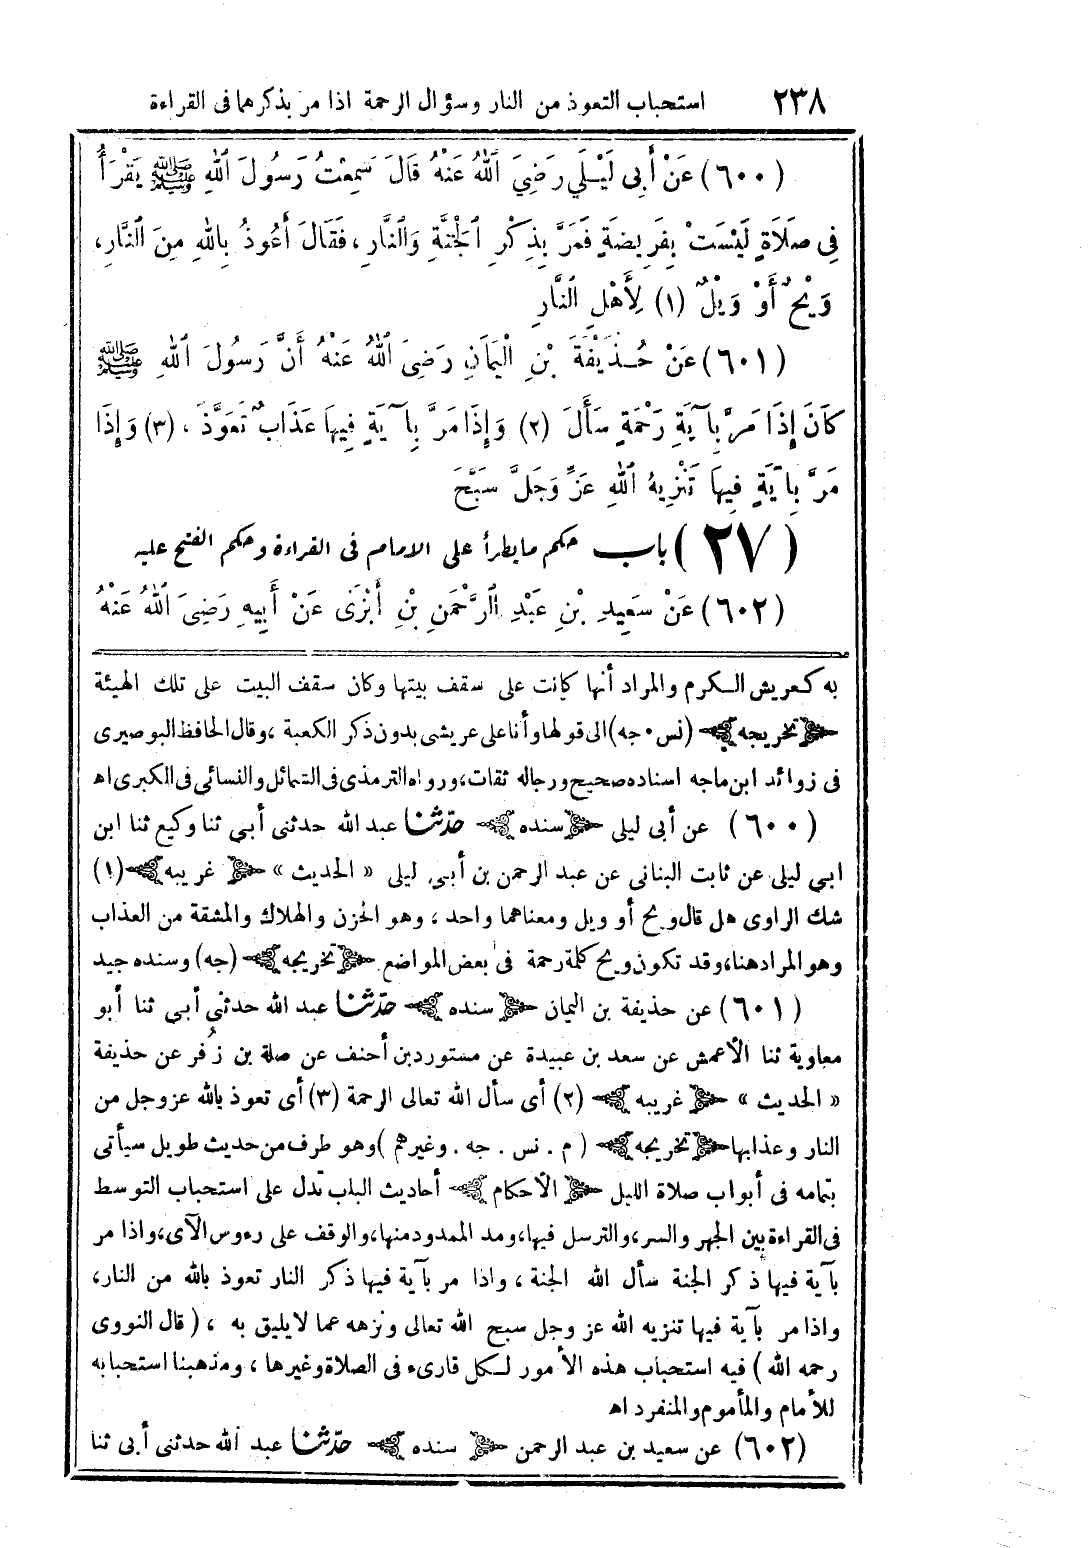 ٢٣٨ استحباب التعوذ من النار وسؤال الرحمة اذا مر بذكرهما فى القراءة
(٦٠٠) عَنْ أَبِى لَيْلَي رَضِيَ اللهُ عَنْهُ قَالَ سَمِعْتُ رَسُولَ اللهِ ﷺ يَقْرَأُ
فِى صَلَاةٍ لَيْسَتْ بِفَرِيضَةٍ فَمَرَّ بِذِكْرِ الْجَنَّةِ وَالنَّارِ ، فَقَالَ أَعُوذُ بِاللهِ مِنَ النَّارِ ،
وَيْحٌ أَوْ وَيْلٌ (١) لِأَهْلِ النَّارِ
(٦٠١) عَنْ حُذَيْفَةَ بْنِ الْيَمَانِ رَضِيَ اللهُ عَنْهُ أَنَّ رَسُولَ اللهِ ﷺ
كَانَ إِذَا مَرَّ بِآيَةِ رَحْمَةٍ سَأَلَ (٢) وَإِذَا مَرَّ بِآيَةٍ فِيهَا عَذَابٌ تَعَوَّذَ ، (٣) وَإِذَا
مَرَّ بِآيَةٍ فِيهَا تَنْزِيهُ اللهِ عَزَّ وَجَلَّ سَبَّحَ
(٢٧) باب حكم ما يطرأ على الامام فى القراءة وحكم الفتح عليه
(٦٠٢) عَنْ سَعِيدِ بْنِ عَبْدِ الرَّحْمَنِ بْنِ أَبْزَى عَنْ أَبِيهِ رَضِيَ اللهُ عَنْهُ
به كعريش الكرم والمراد أنها كانت على سقف بيتها وكان سقف البيت على تلك الهيئة
﴿تخريجه﴾ (نس . جه) الى قولها وأنا على عريشى بدون ذكر الكعبة ، وقال الحافظ البوصيرى
فى زوائد ابن ماجه اسناده صحيح ورجاله ثقات ، ورواه الترمذى فى الشمائل والنسائى فى الكبرى اه
(٦٠٠) عن أبى ليلى ﴿سنده﴾ حدّثنا عبد الله حدثنى أبي ثنا وكيع ثنا ابن
ابي ليلى عن ثابت البنانى عن عبد الرحمن بن أبي ليلى « الحديث » ﴿غريبه﴾ (١)
شك الراوى هل قال ويح أو ويل ومعناهما واحد ، وهو الحزن والهلاك والمشقة من العذاب
وهو المراد هنا ، وقد تكون ويح كلمة رحمة فى بعض المواضع ﴿تخريجه﴾ (جه) وسنده جيد
(٦٠١) عن حذيفة بن اليمان ﴿سنده﴾ حدّثنا عبد الله حدثني أبي ثنا أبو
معاوية ثنا الأعمش عن سعد بن عبيدة عن مستورد بن أحنف عن صلة بن زُفر عن حذيفة
« الحديث » ﴿غريبه﴾ (٢) أى سأل الله تعالى الرحمة (٣) أى تعوذ بالله عز وجل من
النار وعذابها ﴿تخريجه﴾ ( م . نس . جه . وغيرهم ) وهو طرف من حديث طويل سيأتى
بتمامه فى أبواب صلاة الليل ﴿الأحكام﴾ أحاديث الباب تدل على استحباب التوسط
فى القراءة بين الجهر والسر ، والترسل فيها ، ومد الممدود منها ، والوقف على رءوس الآى ، واذا مر
بآية فيها ذكر الجنة سأل الله الجنة ، واذا مر بآية فيها ذكر النار تعوذ بالله من النار ،
واذا مر بآية فيها تنزيه الله عز وجل سبح الله تعالى ونزهه عما لا يليق به ، ( قال النووى
رحمه الله ) فيه استحباب هذه الأمور لكل قارىء فى الصلاة وغيرها ، ومذهبنا استحبابه
للأمام والمأموم والمنفرد اه
(٦٠٢) عن سعيد بن عبد الرحمن ﴿سنده﴾ حدّثنا عبد الله حدثنى أبى ثنا